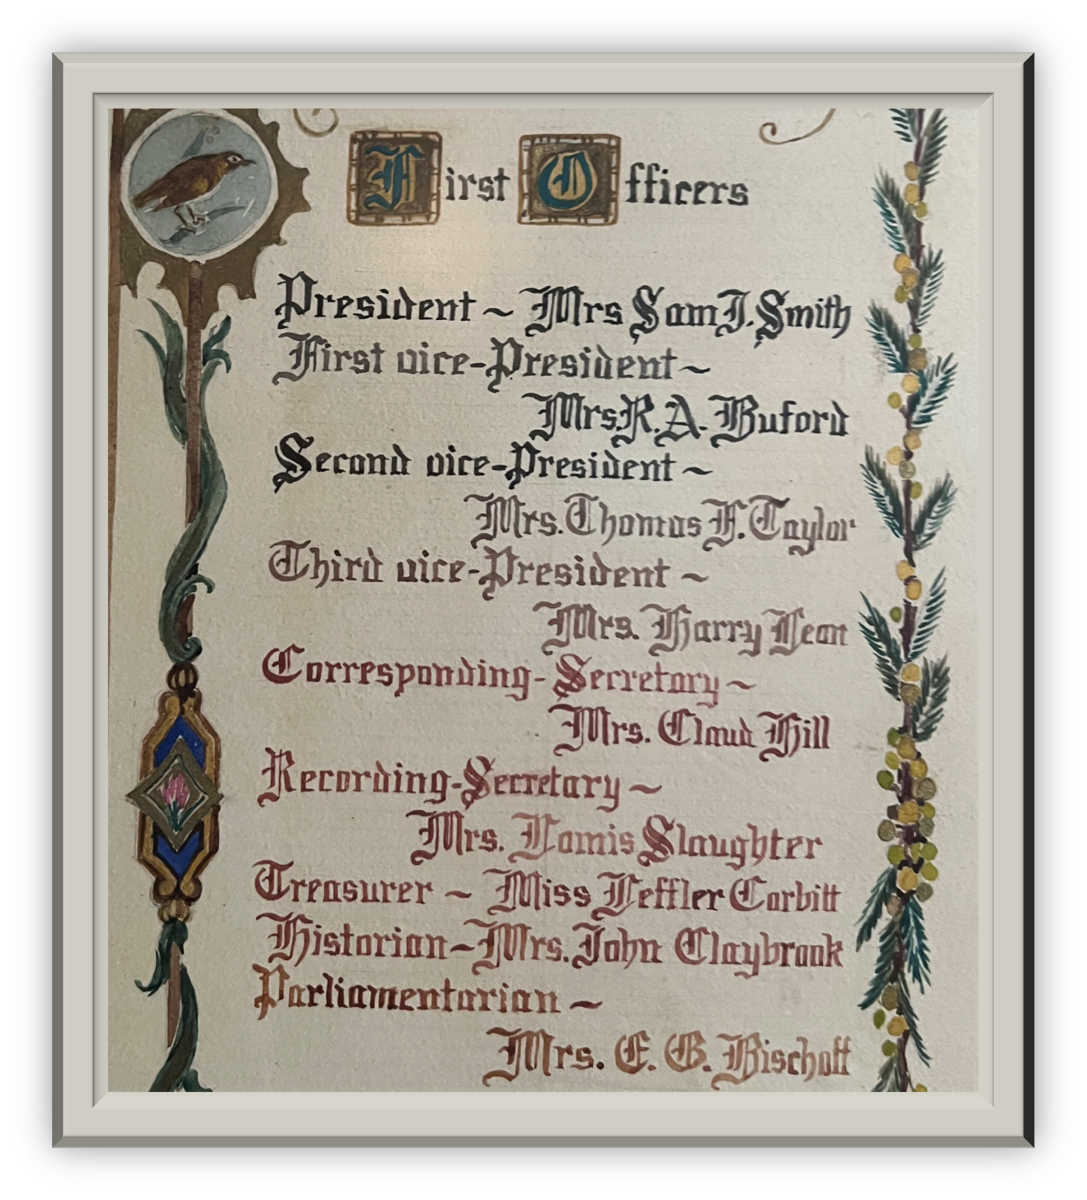 First Officers
President ~ Mrs Sam J. Smith
First vice-President ~
Mrs. R. A. Buford
Second vice-President ~
Mrs. Thomas F. Taylor
Third vice-President ~
Mrs. Harry Leon
Corresponding-Secretary ~
Mrs. Claud Hill
Recording-Secretary ~
Mrs. Lomis Slaughter
Treasurer ~ Miss Leffler Corbitt
Historian ~ Mrs. John Claybrook
Parliamentarian ~
Mrs. E. G. Bischoff